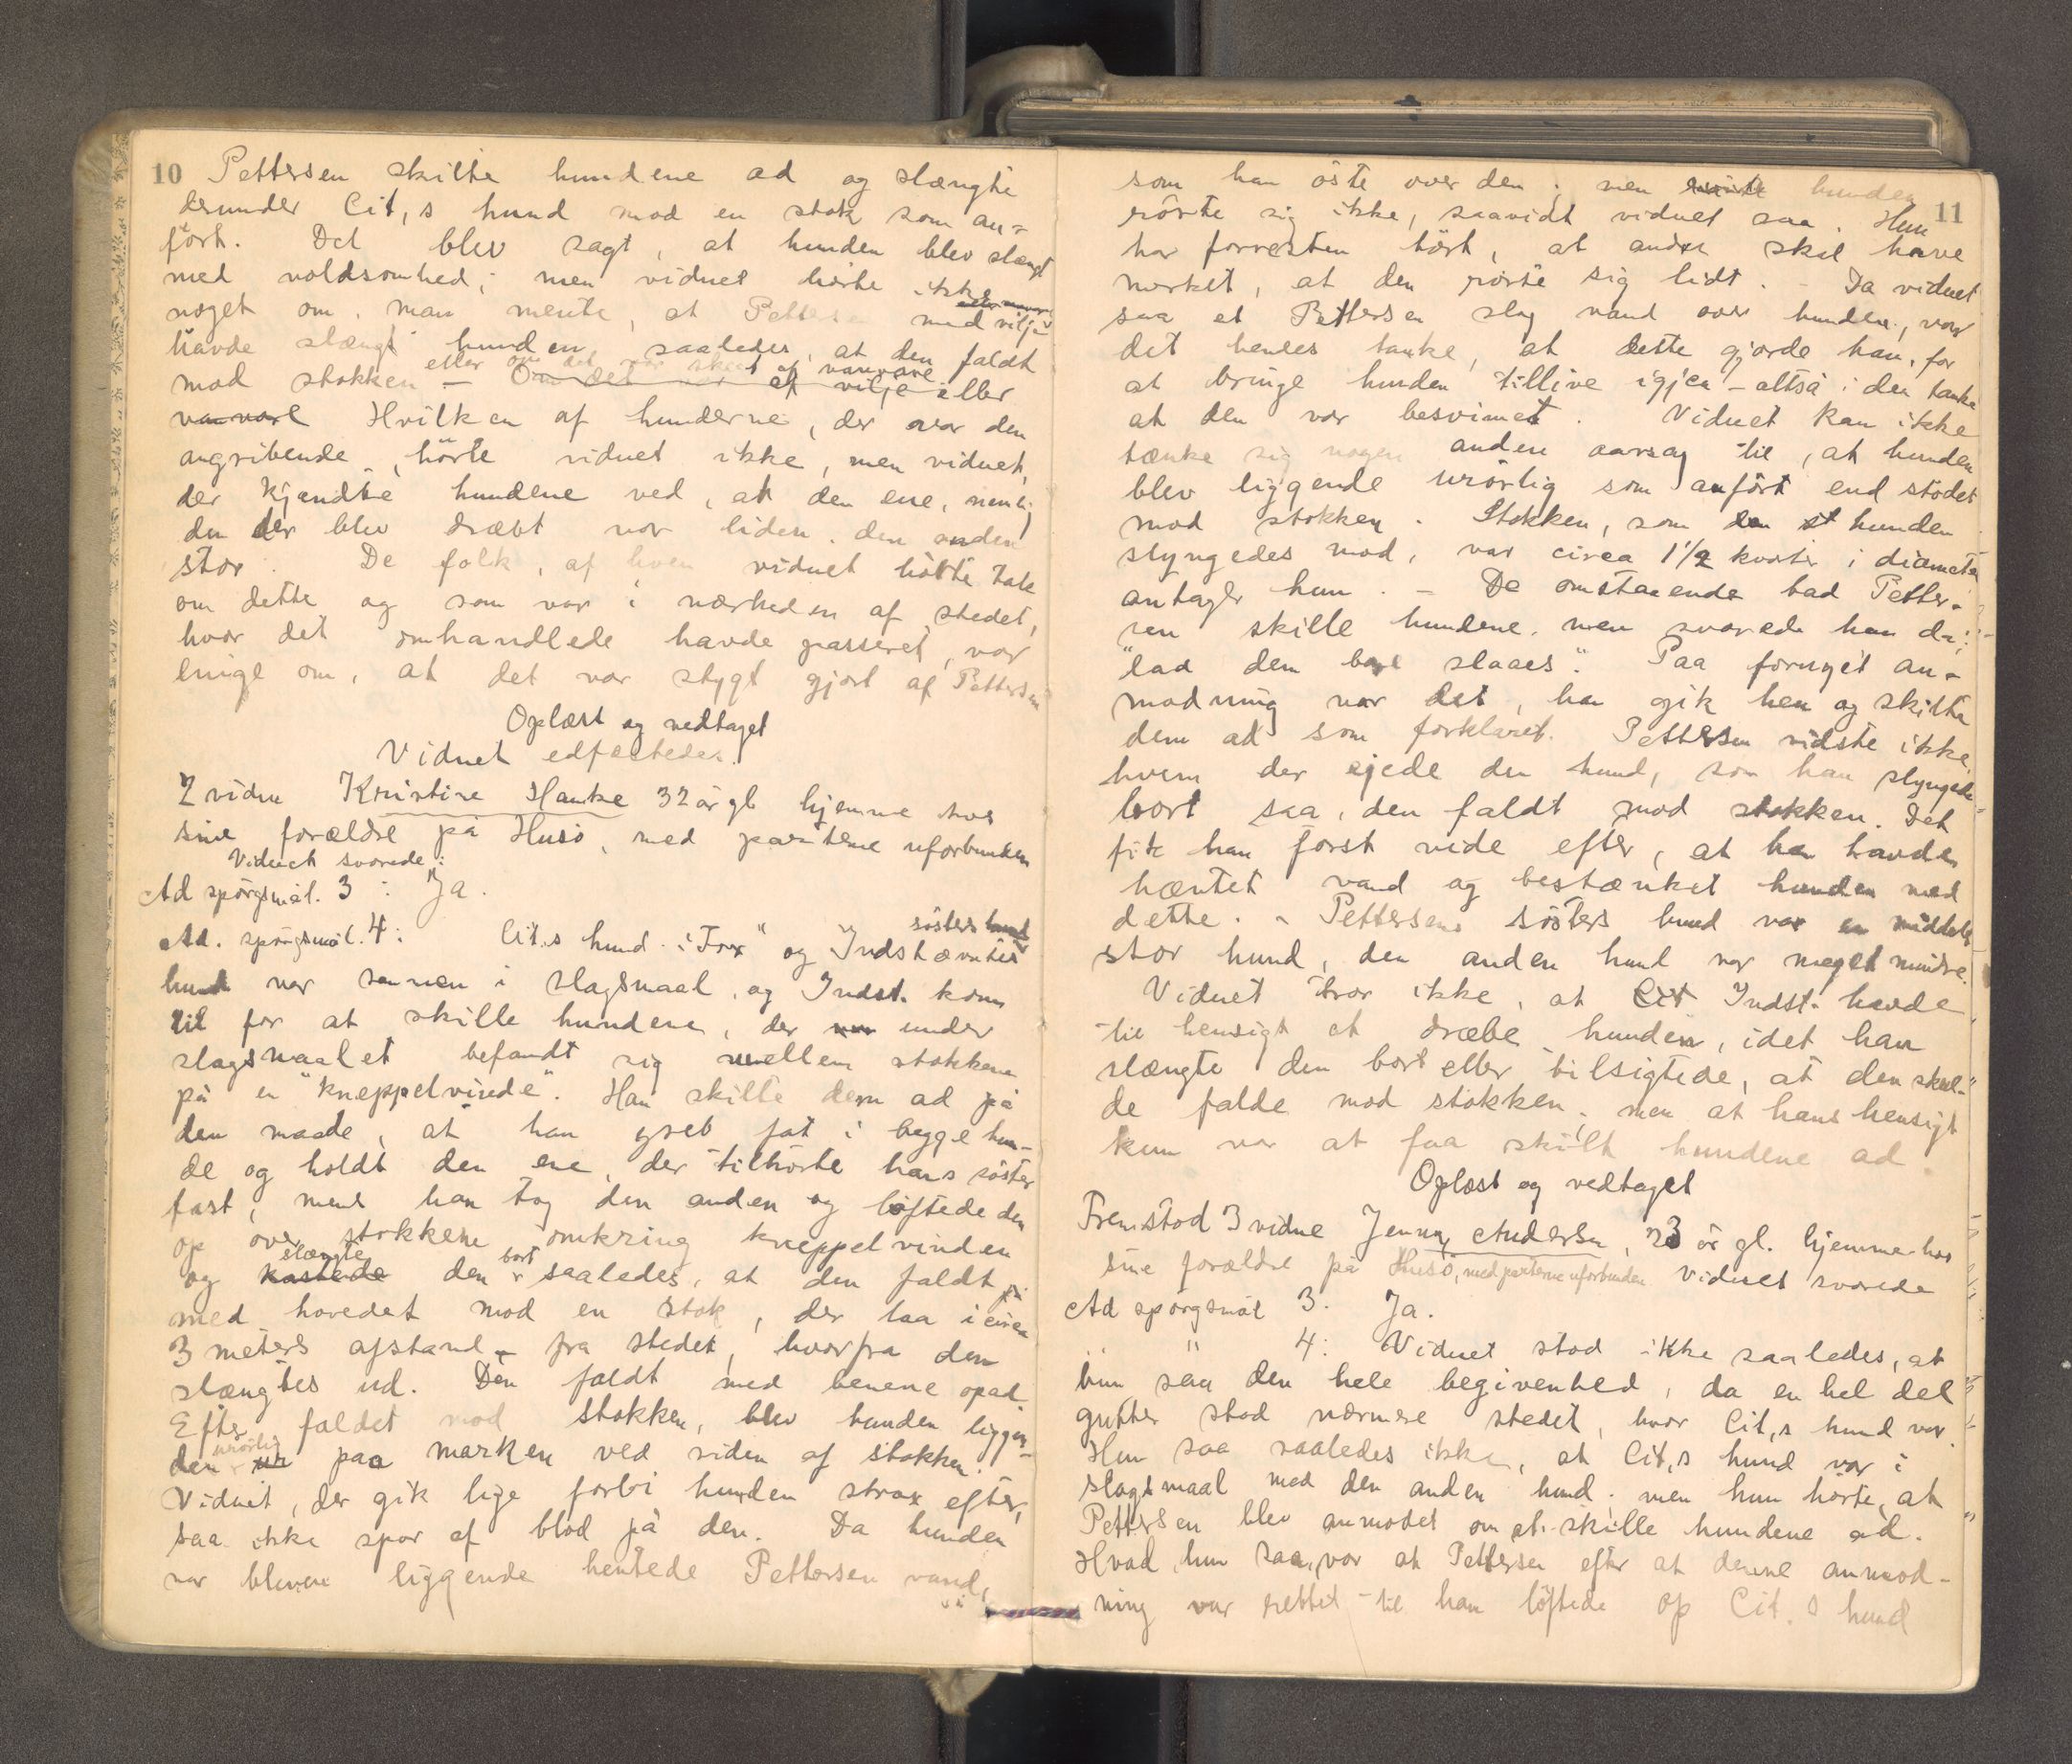 10
Pettersen skilte hundene ad og slængte
derunder Cit,s hund mod en stok som an-
ført. Det blev sagt, at hunden blev slængt
med voldsomhed; men vidnet hørte ikke
noget om, man mente, at Pettersen med vilje
havde slængt hunden saaledes, at den faldt
eller om det var skeet af vanvare
mod stokken – Om det var af vilje eller
vanvare Hvilken af hunderne, der var den
angribende, hörte vidnet ikke, men vidnet,
der kjendte hundene ved, at den ene, nemlig
den der blev dræbt var liden, den anden
stor. De folk, af hvem vidnet hörte tale
om dette og som var i nærheden af stedet,
hvor det omhandlede havde passeret, var
enige om, at det var stygt gjort af Pettersen
Oplæst og vedtaget
Vidnet edfæstedes.
2 vidne Kristine Hanke 32 år gl hjemme hos
sine forældre på Husö, med parterne uforbunden
Vidnet svarede:
Ad spørgsmål. 3: Ja.
Ad. spørgsmål. 4: Cit.s hund "Fox" og Indstævntes søsters hund
hund var sammen i slagsmaal, og Indst. kom
til for at skille hundene, der var under
slagsmaalet befandt sig mellem stokkene
på en "kneppelvinde". Han skilte dem ad på
den maade, at han greb fat i begge hun-
de og holdt den ene, der tilhörte hans søster
fast, mens han tog den anden og løftede den
op over stokkene omkring kneppelvinden
og kastede slængte den bort saaledes, at den faldt på
med hovedet mod en stok, der laa i circa
3 meters afstand fra stedet, hvorfra den
slængtes ud. Den faldt med benene opad.
Efter faldet mod stokken, blev hunden liggen-
den urørlig paa marken ved siden af stokken.
Vidnet, der gik lige forbi hunden strax efter,
saa ikke spor af blod på den. Da hunden
var bleven liggende hentede Pettersen vand,
11
som han öste over den; men hunden
rörte sig ikke, saavidt vidnet saa. Hun
har forresten hört, at andre skal have
merket, at den rörte sig lidt. – Da vidnet
saa at Pettersen slog vand over hunden, var
det hendes tanke, at dette gjorde han, for
at bringe hunden tillive igjen – altså i den tanke
at den var besvimet. Vidnet kan ikke
tænke sig nogen anden aarsag til, at hunden
blev liggende urörlig som anfört end stödet
mod stokken. Stokken, som hunden
slyngedes mod, var circa 1½ kvarter i diameter
antager hun. – De omstaaende bad Petter-
sen skille hundene, men svarede han da:
"lad dem bare slaaes". Paa fornyet an-
modning var det, han gik hen og skilte
dem ad som forklaret. Pettersen vidste ikke,
hvem der ejede den hund, som han slyngede
bort saa, den faldt mod stokken. Det
fik han først vide efter, at han havde
hæntet vand og bestænket hunden med
dette. – Pettersens søsters hund var en middels
stor hund, den anden hund var meget mindre.
Vidnet tror ikke, at Cit Indst. havde
til hensigt at dræbe hunden, idet han
slængte den bort eller tilsigtede, at den skul-
de falde mod stokken; men at hans hensigt
kun var at faa skilt hundene ad.
Oplæst og vedtaget
Fremstod 3 vidne Jenny Andersen, 23 år gl. hjemme hos
sine forældre på Husö, med parterne uforbunden Vidnet svarede
Ad spørgsmål 3. Ja.
" " 4: Vidnet stod ikke saaledes, at
hun saa den hele begivenhed, da en hel del
gutter stod nærmere stedet, hvor Cit,s hund var.
Hun saa saaledes ikke, at Cit,s hund var i
slagsmaal med den anden hund; men hun hørte, at
Pettersen blev anmodet om at skille hundene ad.
Hvad hun saa, var at Pettersen efter at denne anmod-
ning var rettet til ham løftede op Cit.s hund